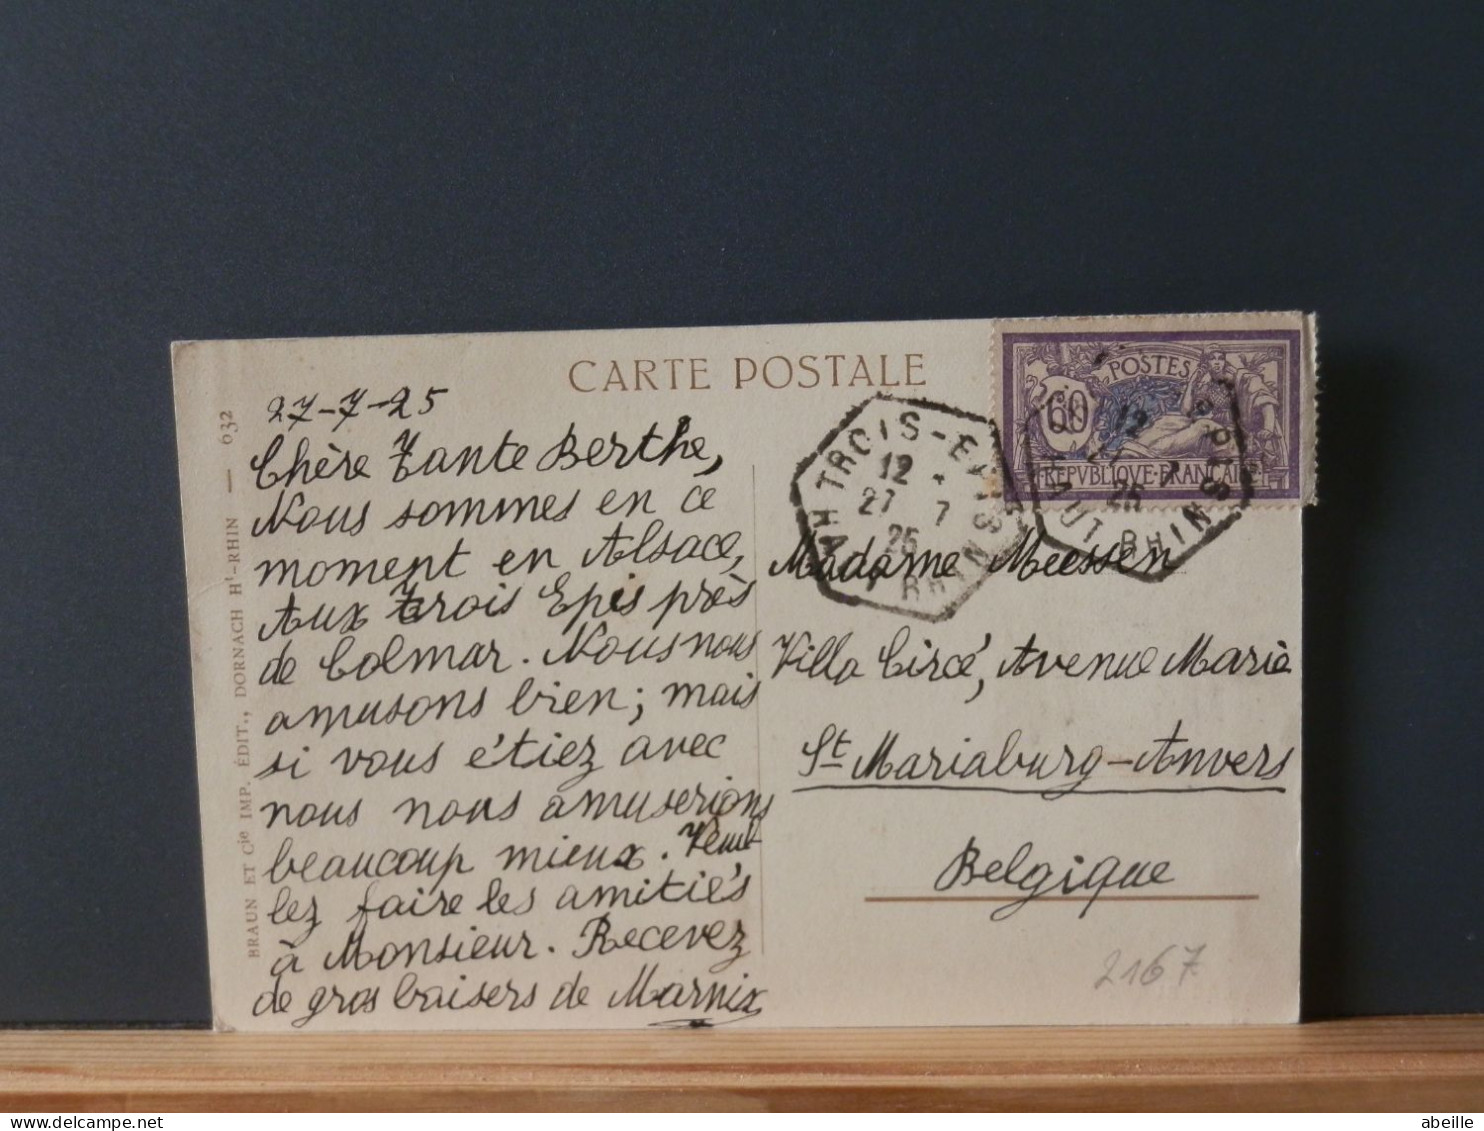 CARTE POSTALE
27-7-25
Chère Tante Berthe,
Nous sommes en ce
moment en Alsace,
Aux Trois Epis près
de Colmar. Nous nous
amusons bien; mais
si vous étiez avec
nous nous amuserions
beaucoup mieux. Veuil-
lez faire les amitiés
à Monsieur. Recevez
de gros baisers de Marnix
BRAUN ET Cie IMP. ÉDIT., DORNACH Ht-RHIN — 632
POSTES
60
REPVBLIQVE·FRANÇAISE
TROIS-EPIS
12
27 7
25
HAUT RHIN
12
7
25
HAUT RHIN
Madame Meessen
Villa Circé, Avenue Maria
St Mariaburg-Anvers
Belgique
2167
abeille